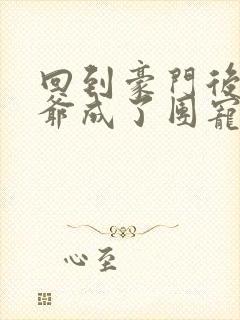 回到豪門後
爺成了團寵
心至